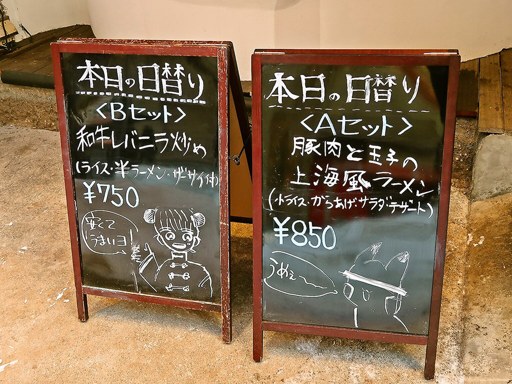 本日の日替り
<Bセット>
和牛レバニラ炒め
(ライス・半ラーメン・ザーサイ付)
¥750
安くて
うまいヨ
本日の日替り
<Aセット>
豚肉と玉子の
上海風ラーメン
(小ライス・からあげサラダ・デザート)
¥850
うめぇ〜